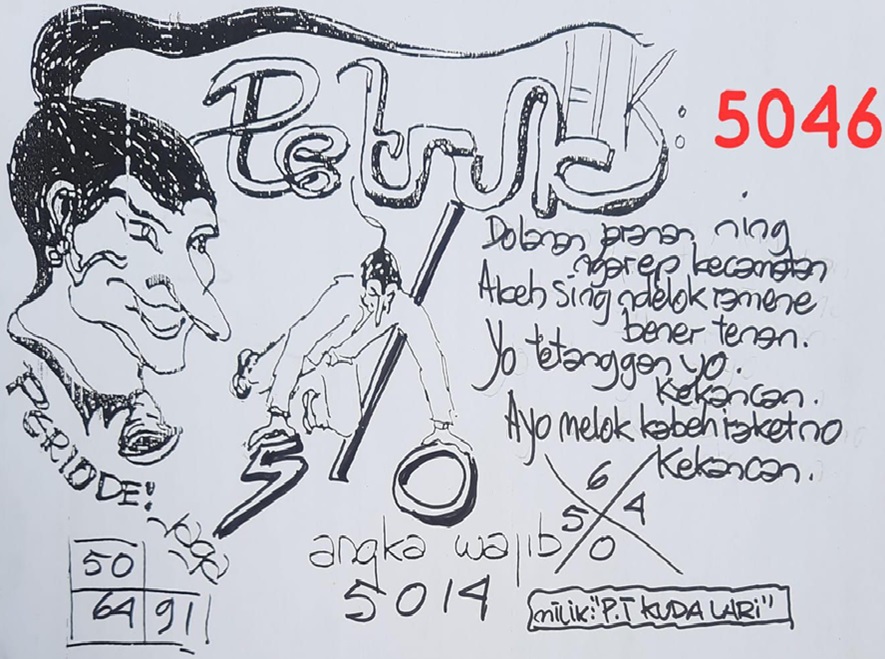 Petruk HK: 5046
Dolanan aranan ning
ngarep kecamatan
Akeh sing ndelok ramene
bener tenan.
Yo tetanggan yo.
Kekancan.
Ayo melok kabeh raket no
Kekancan.
PERIODE!
5/0
6
5 4
0
angka wajib
5014
50
64 91
milik: "P.T KUDA LARI"